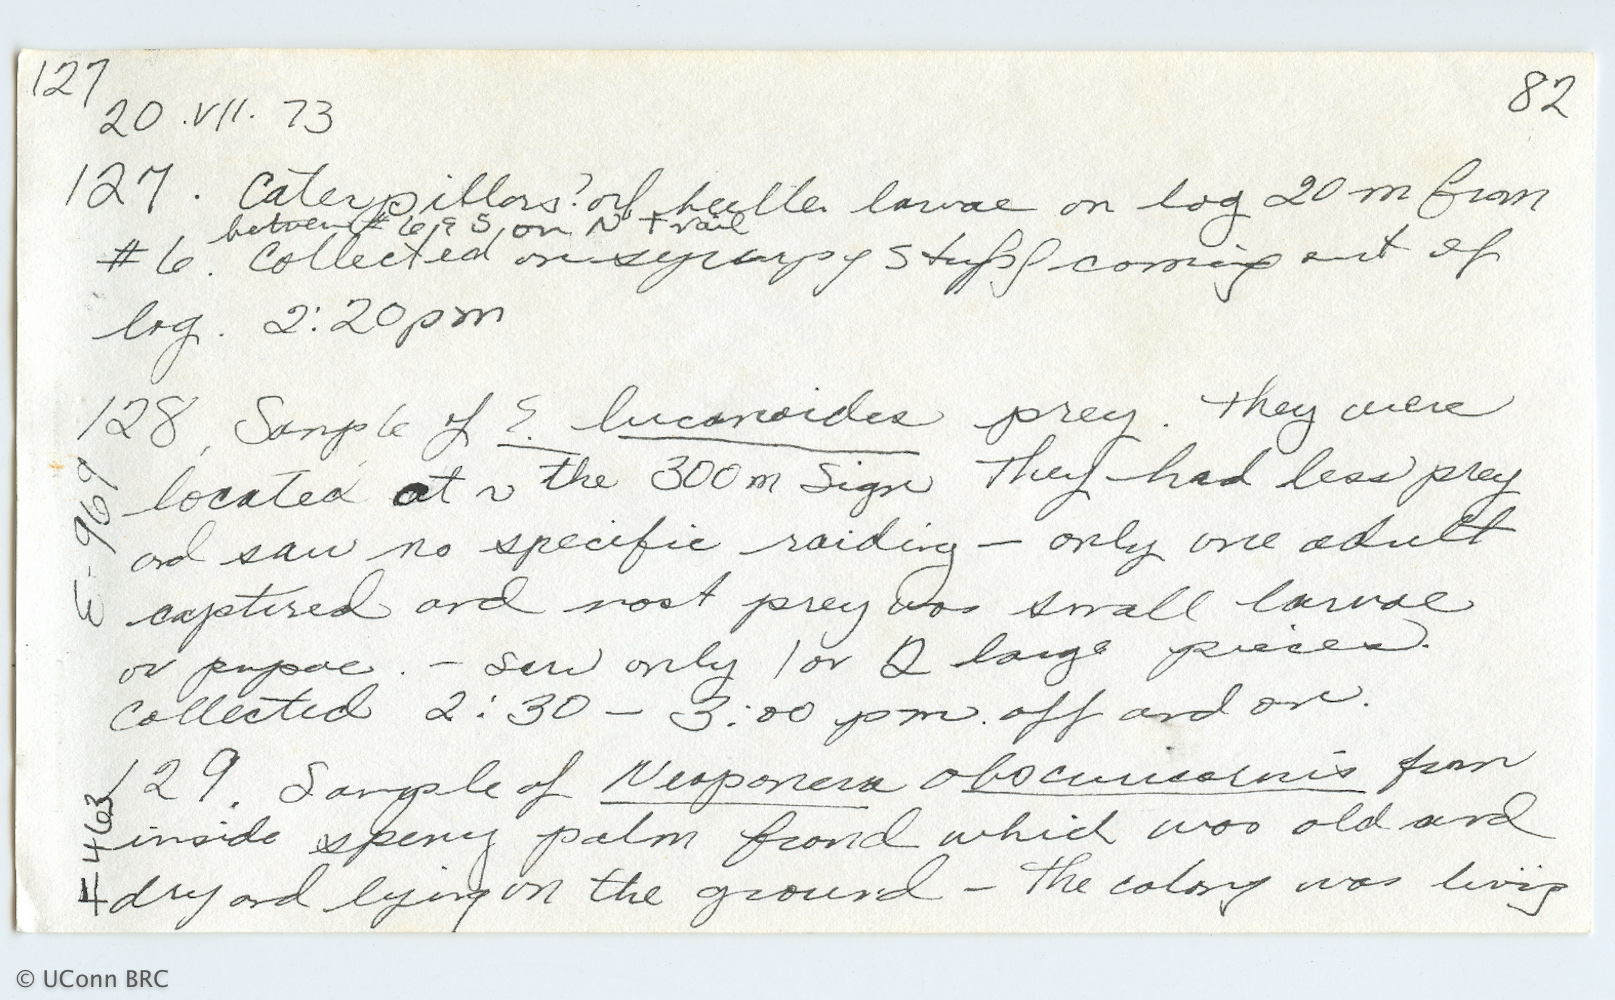 127
82
20 .VII. 73
127. Caterpillars? of beetle larvae on log 20 m from
between #6, on N trail
#6. Collected on syrupy stuff coming out of
log. 2:20pm
128. Sample of E. lucanoides prey. They were
located at ~ the 300m sign They had less prey
and saw no specific raiding – only one adult
captured and most prey was small larvae
or pupae. – saw only 1 or 2 large pieces.
Collected 2:30 – 3:00 pm. off and on.
E-969
129. Sample of Neoponera obscuricornis from
inside spiny palm frond which was old and
dry and lying on the ground – The colony was living
F463
© UConn BRC